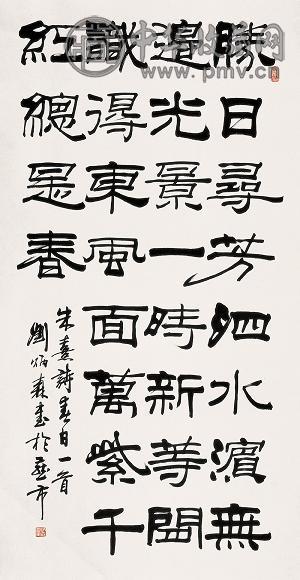 勝日尋芳泗水濱無
邊光景一時新等閒
識得東風面萬紫千
紅總是春
朱熹詩春日一首
劉炳森書於燕市
www.pmv.cn